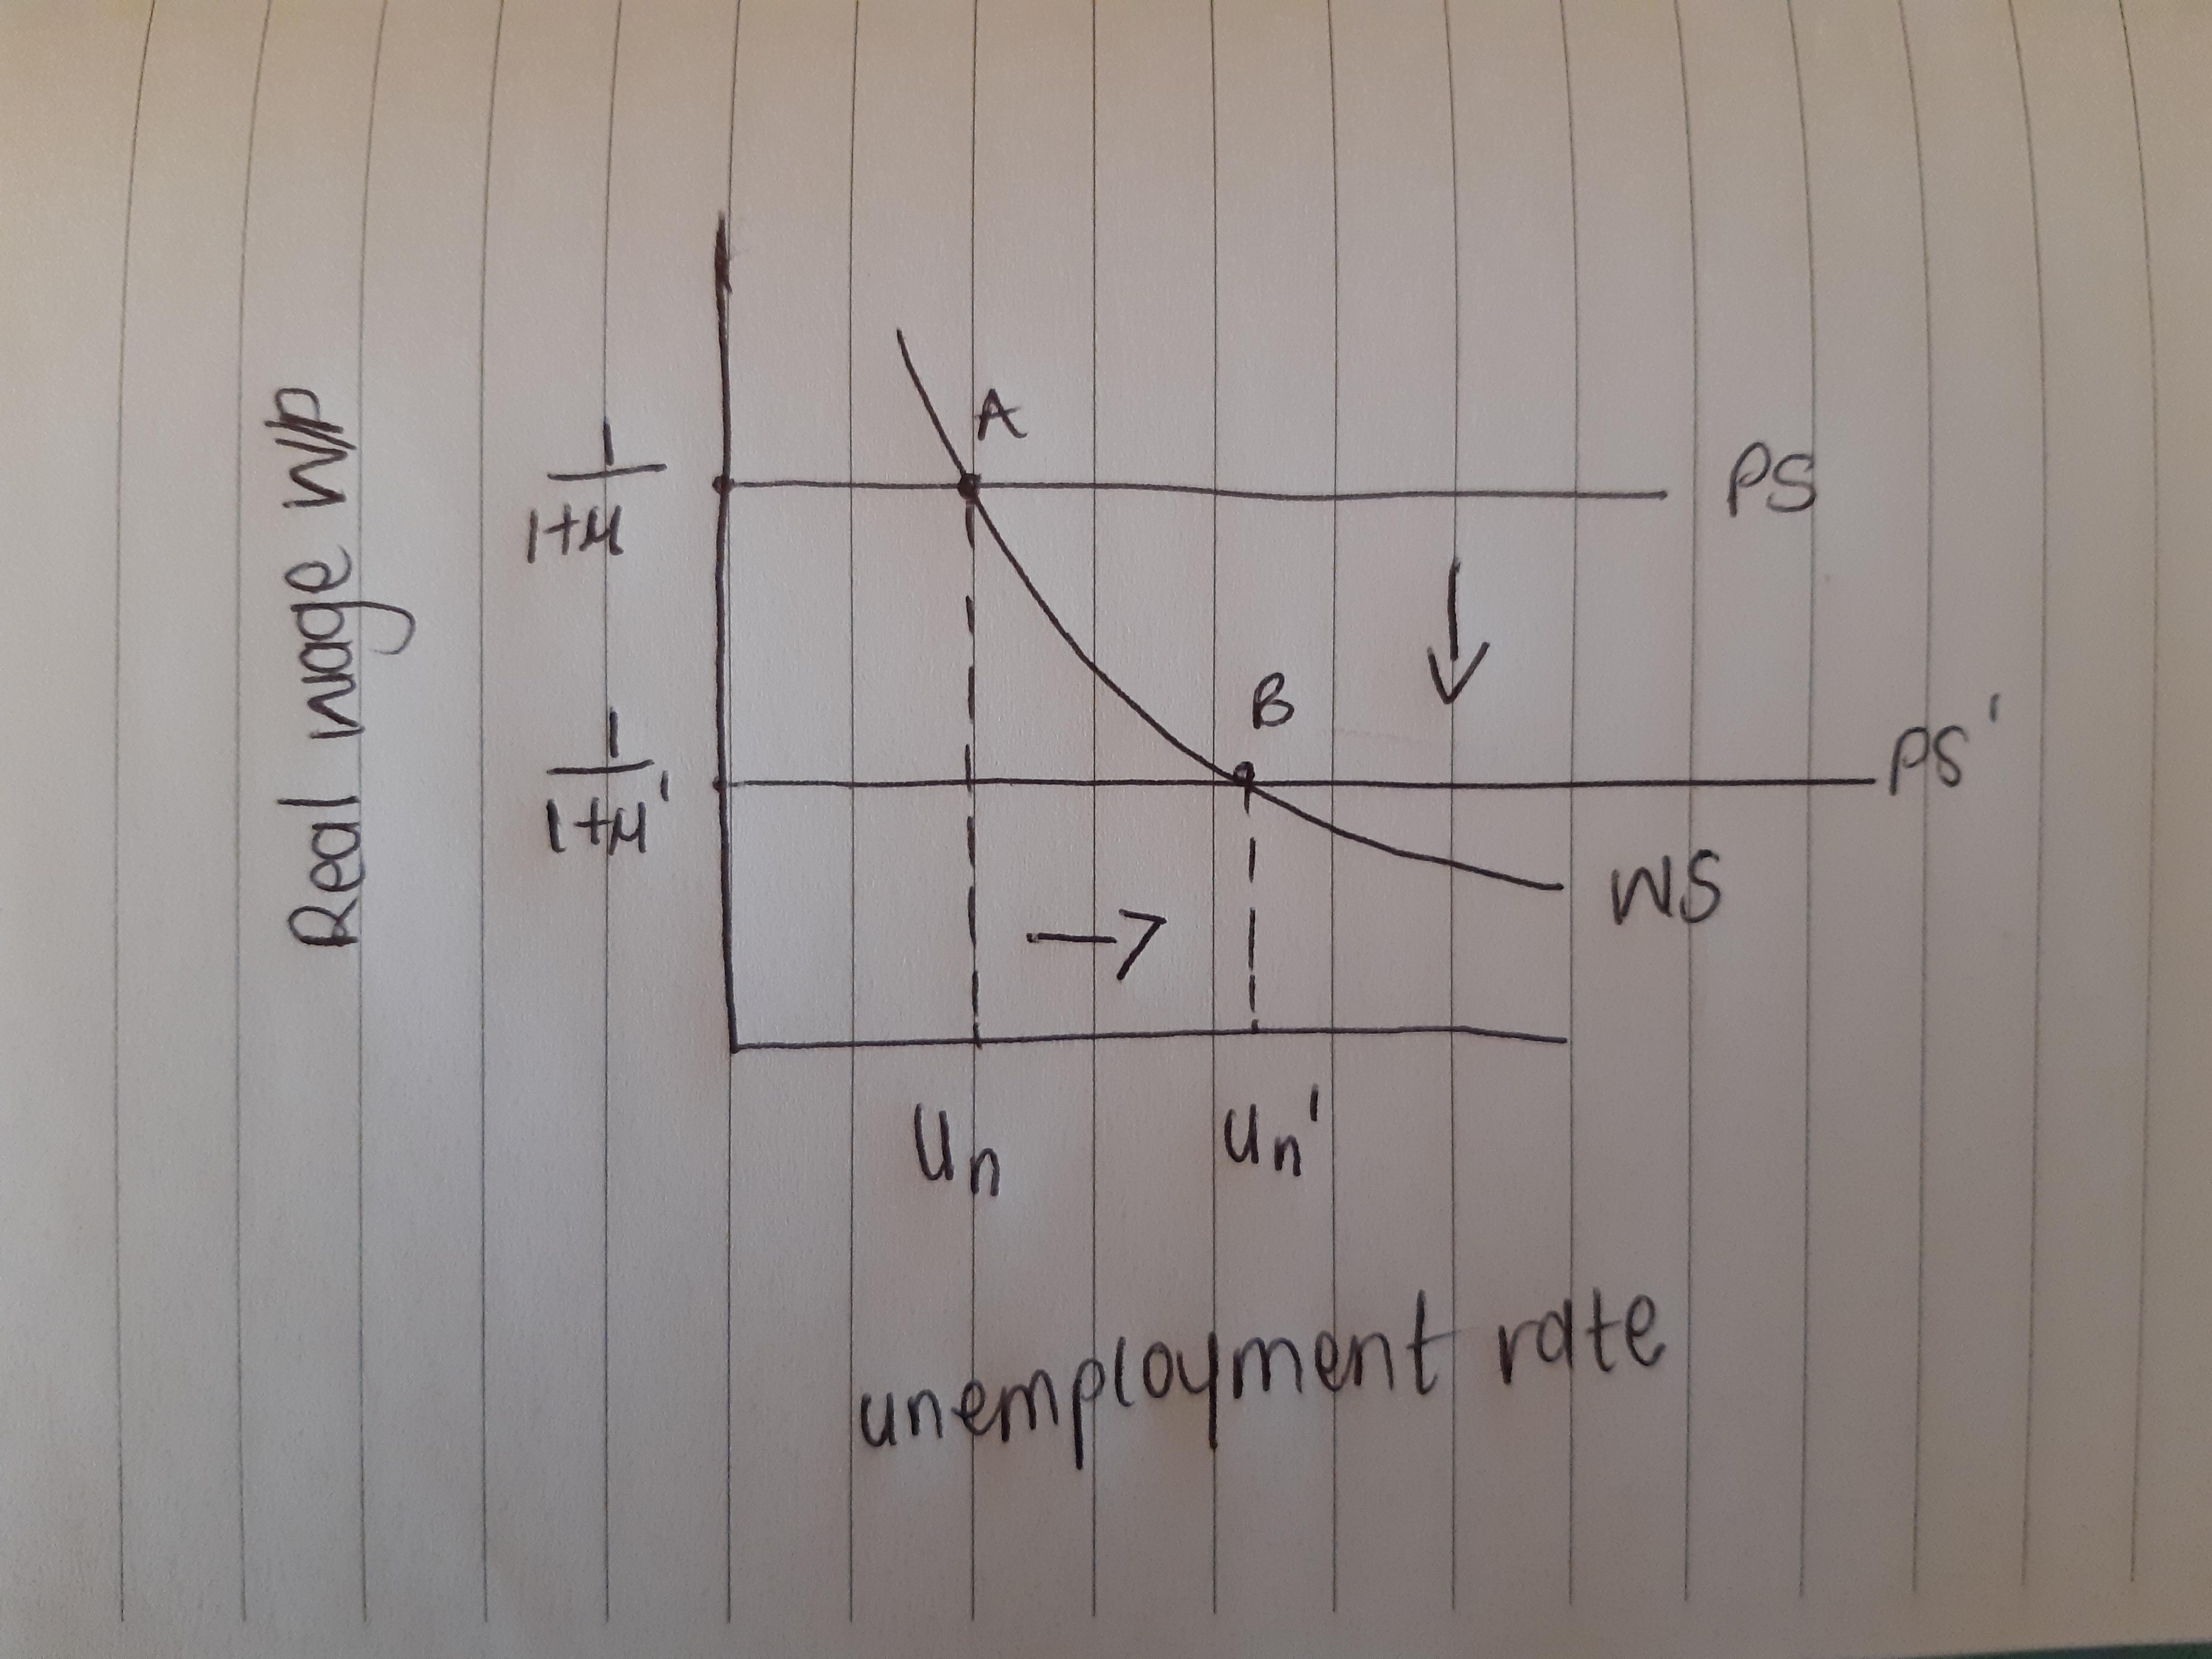 Real wage W/P
A
1
1+μ
PS
B
1
1+μ'
PS'
WS
un
un'
unemployment rate